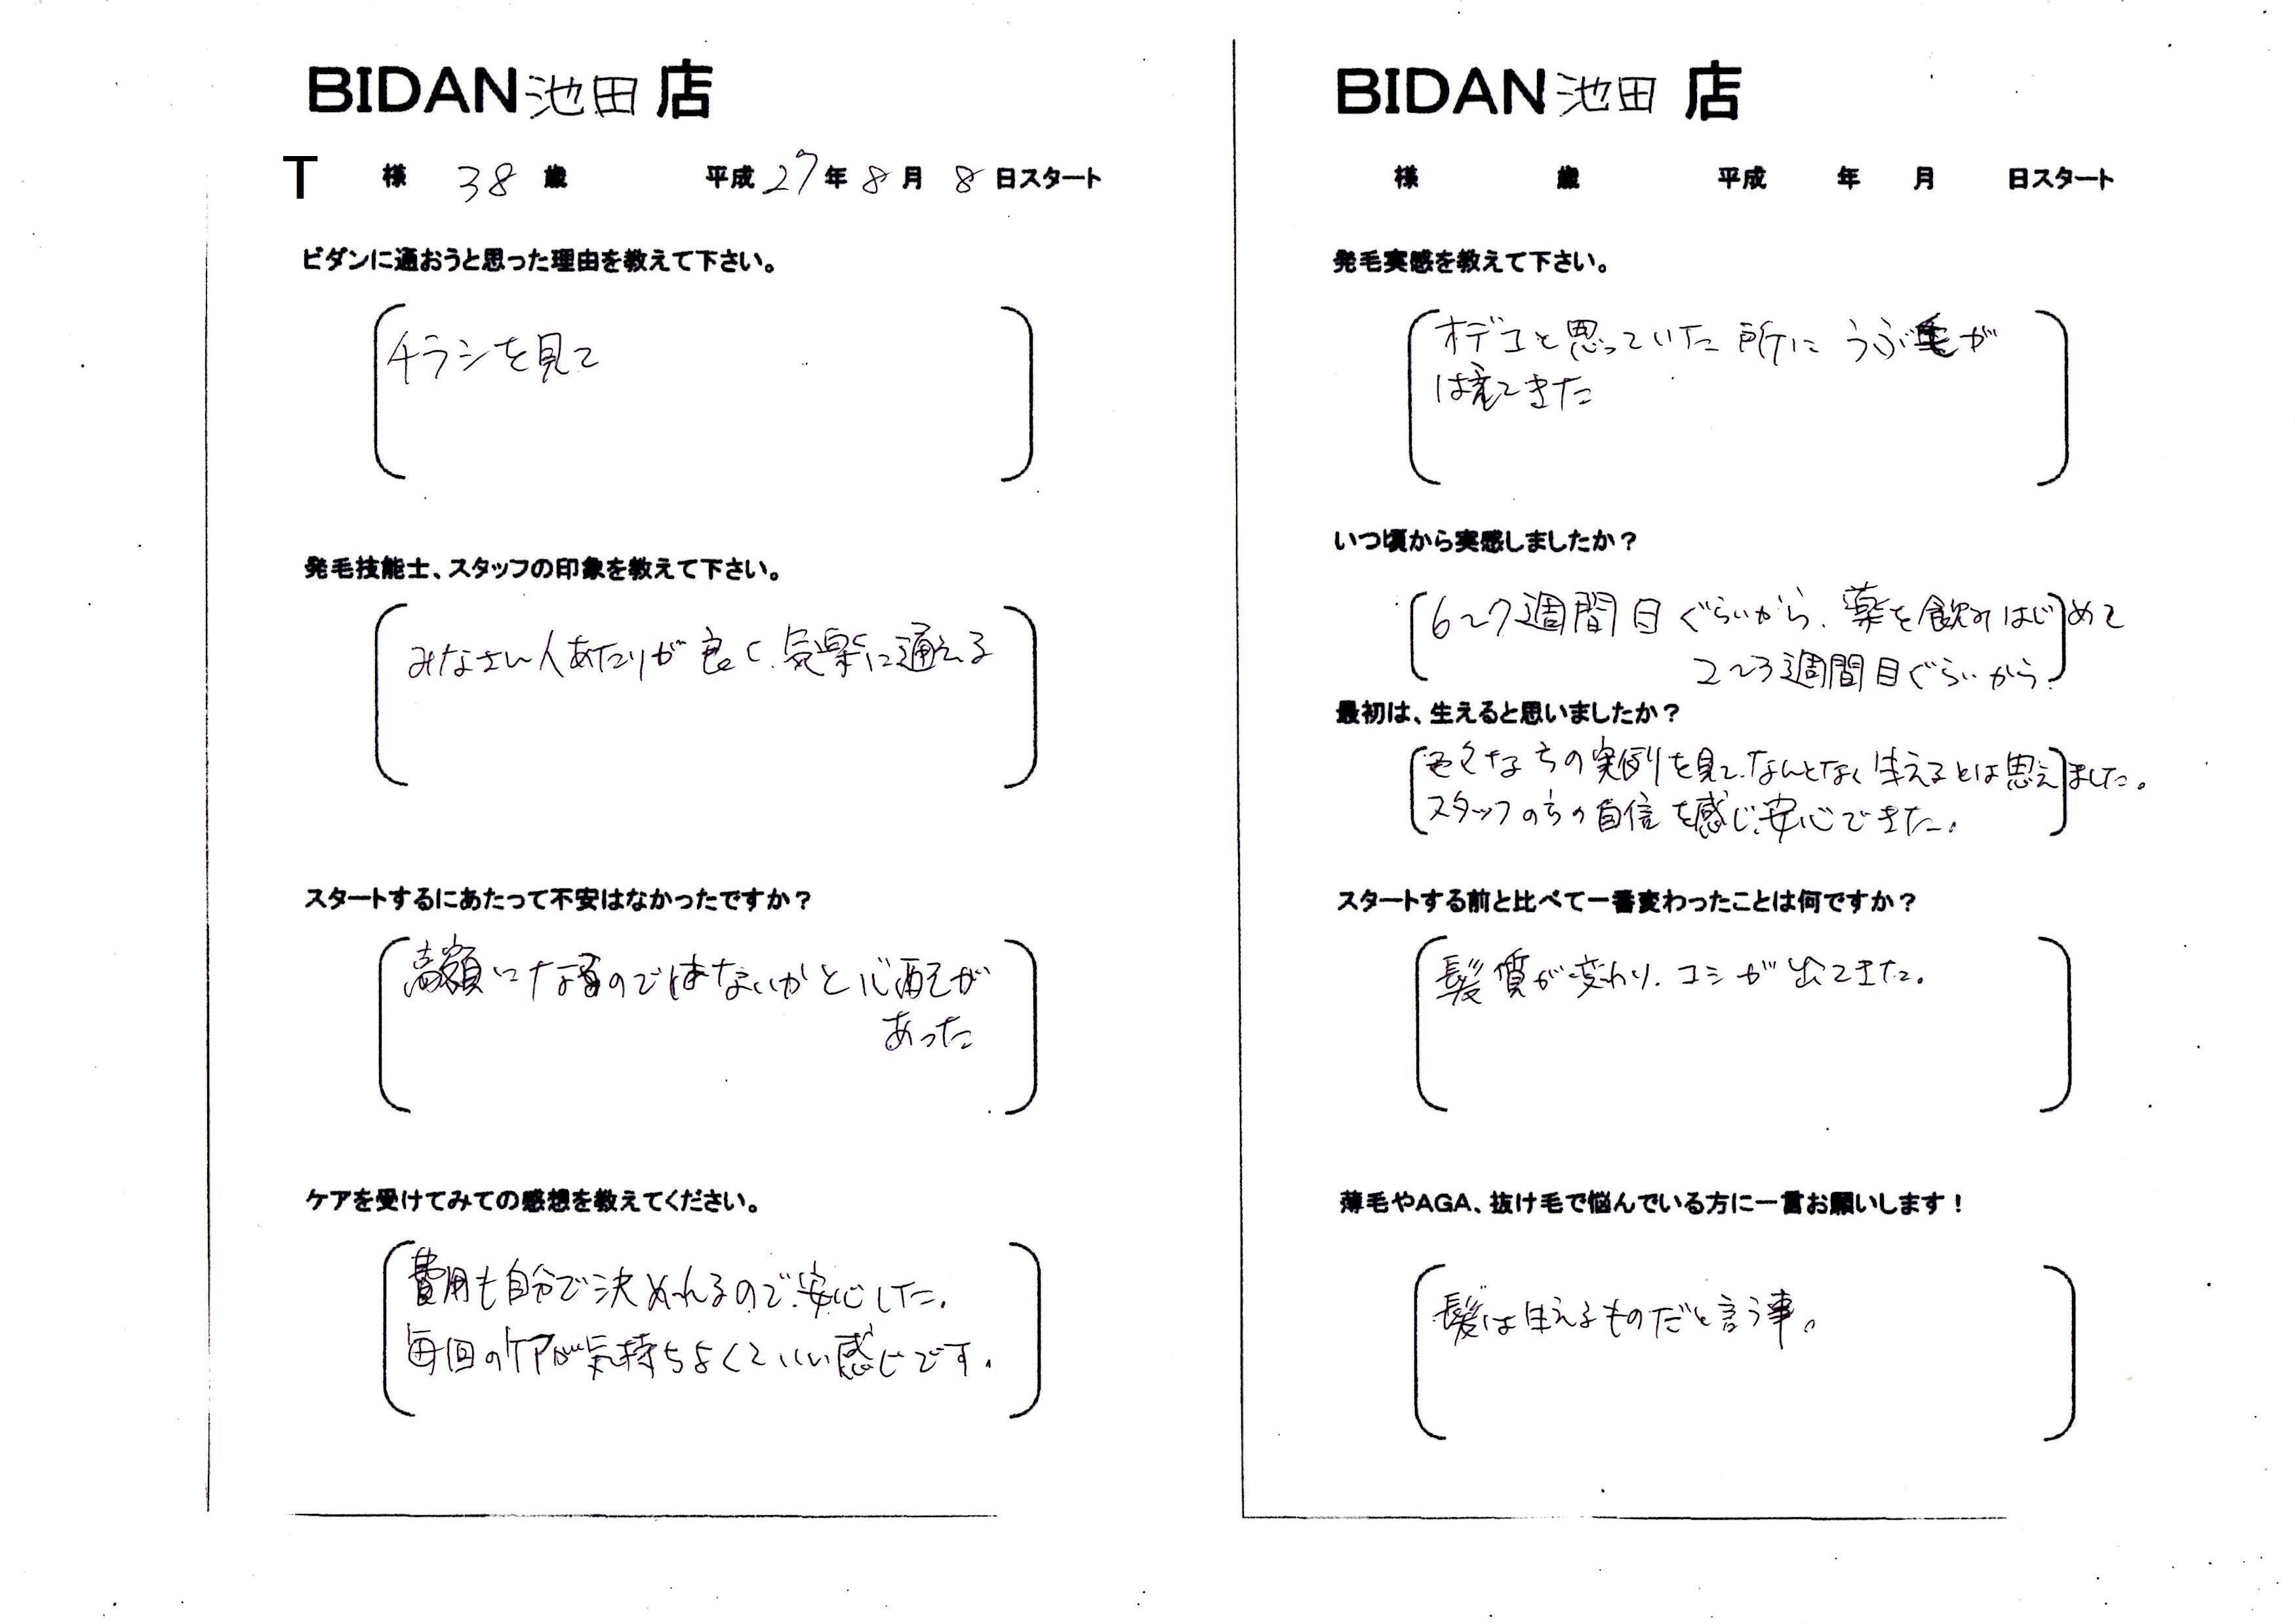 BIDAN池田店
T 様 38 歳 平成27年8月8日スタート
ビダンに通おうと思った理由を教えて下さい。
チラシを見て
発毛技能士、スタッフの印象を教えて下さい。
みなさん人あたりが良く、気楽に通える
スタートするにあたって不安はなかったですか？
高額になるのではないかと心配が
あった
ケアを受けてみての感想を教えてください。
費用も自分で決めれるので、安心した。
毎回のケアが気持ちよくていい感じです。
BIDAN池田店
様 歳 平成 年 月 日スタート
発毛実感を教えて下さい。
オデコと思っていた所にうぶ毛が
はえてきた
いつ頃から実感しましたか？
6〜7週間目ぐらいから、薬を飲みはじめて
2〜3週間目ぐらいから。
最初は、生えると思いましたか？
色々な方の実例を見て、なんとなく生えるとは思えました。
スタッフの方の自信を感じ、安心できた。
スタートする前と比べて一番変わったことは何ですか？
髪質が変わり、コシが出てきた。
薄毛やAGA、抜け毛で悩んでいる方に一言お願いします！
髪は生えるものだと言う事。